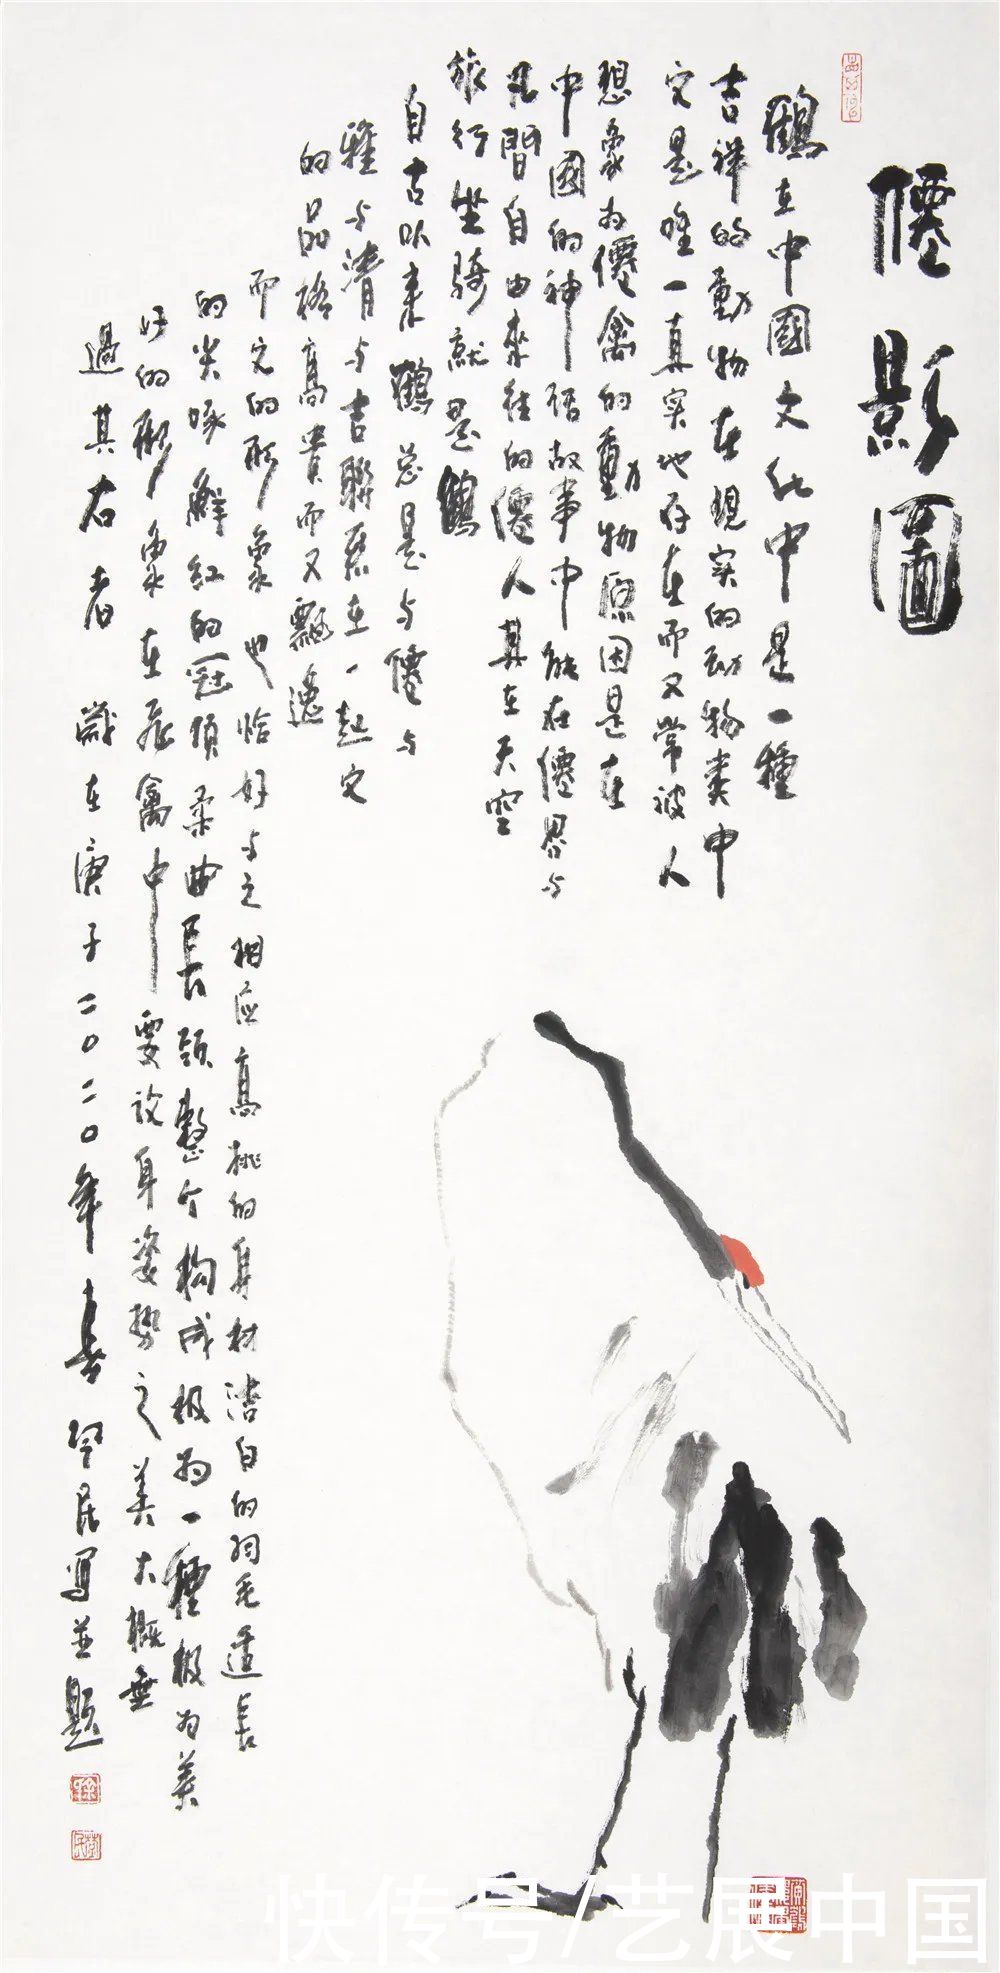 僊影圖
鶴在中國文化中是一種
吉祥的動物在現实的动物类中
它是唯一真实地存在而又常被人
想象为僊禽的動物原因是在
中國的神话故事中能在僊界与
凡間自由来往的僊人其在天空
旅行坐骑就是鶴
自古以来鶴总是与僊与
雅与清与吉聯系在一起它
的品格高貴而又飘逸
而它的形象也恰好与之相应高挑的身材洁白的羽毛
的尖喙鲜红的冠顶柔曲長頸整个构成极为一種极为美
好的形象在飛禽中要论身姿势之美大概無
過其右者 歲在庚子二〇二〇年春 写並题
快传号/艺展中国